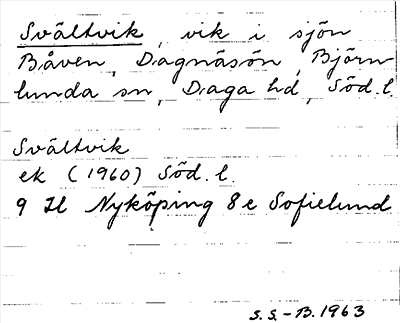 Svältvik, vik i sjön
Båven, Dagnäsön, Björn
lunda sn, Daga hd, Söd. l.
Svältvik
ek (1960) Söd. l.
9 H Nyköping 8 e Sofielund
S.S.-B. 1963